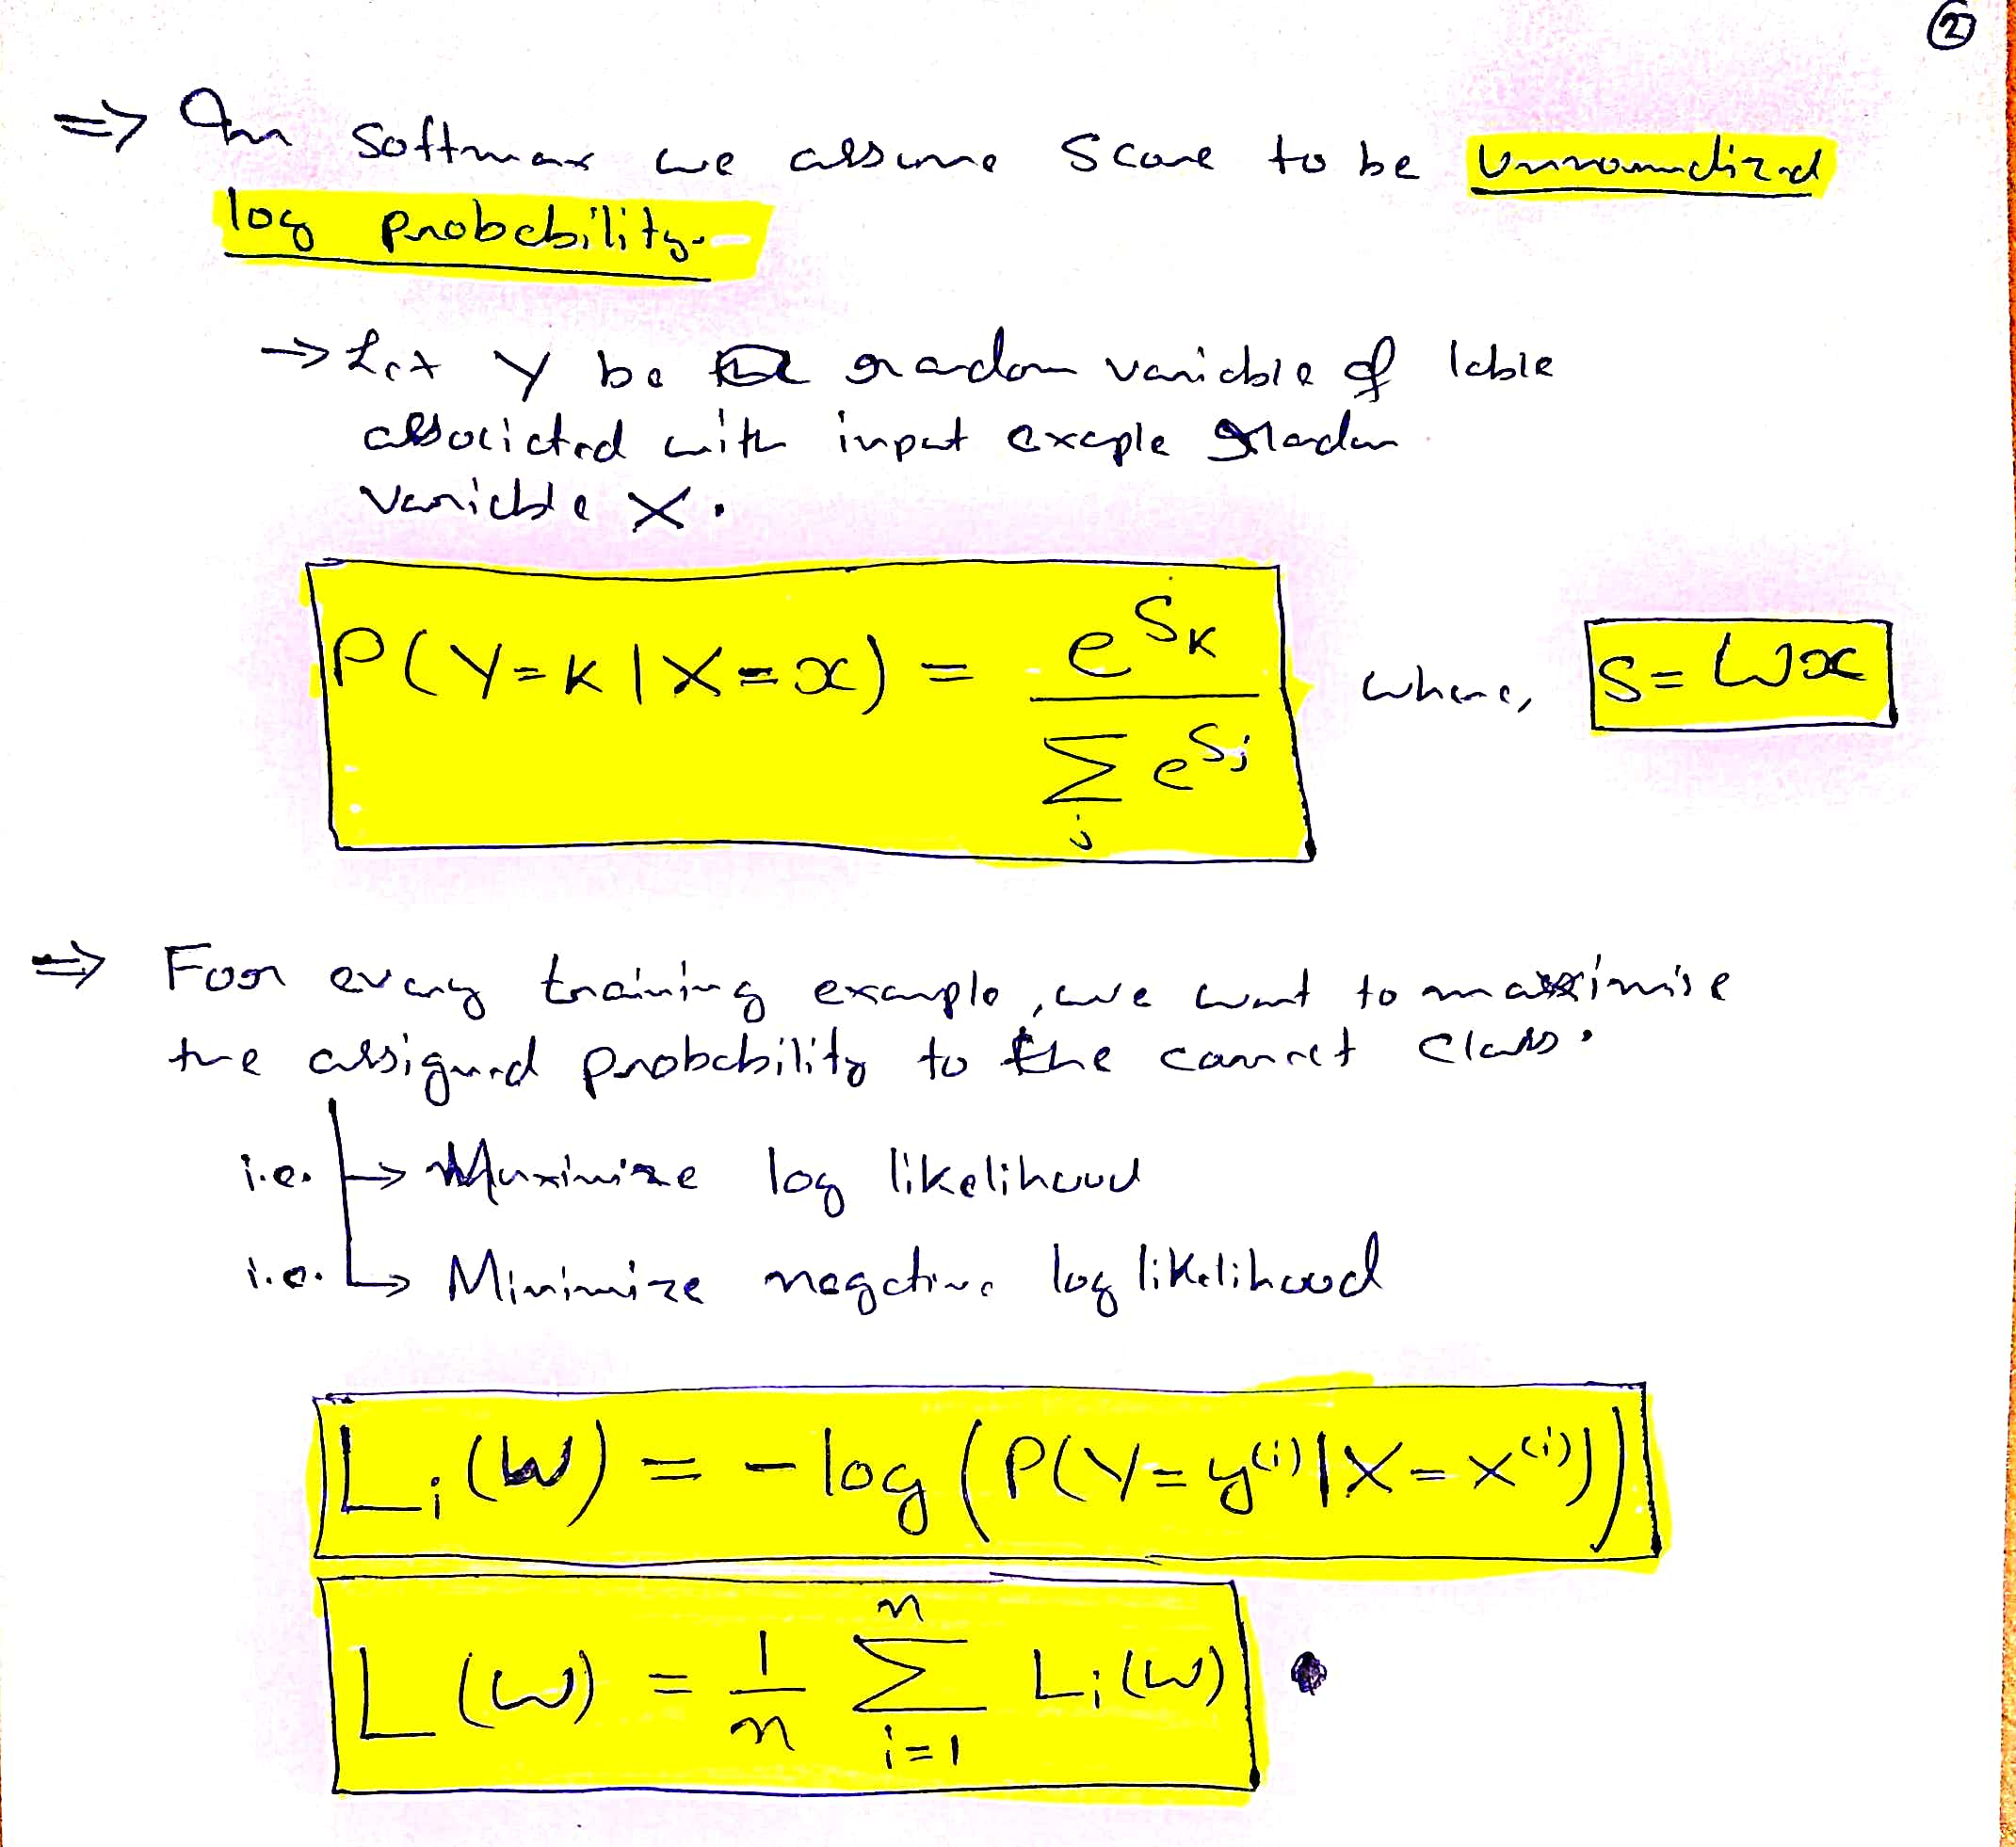 ②
⇒ In Softmax we assume Score to be Unnormalized
log probability.
→ Let Y be random variable of lable
associated with input exaple random
variable X.
P(Y=K|X=x) = e^{S_K} / Σ_j e^{S_j} where, S = Wx
⇒ For every training example, we want to maximise
the assigned probability to the correct class.
i.e. → Maximize log likelihood
i.e. → Minimize negative log likelihood
L_i(W) = -log(P(Y=y^{(i)}|X=x^{(i)}))
L(W) = 1/n Σ_{i=1}^{n} L_i(W)